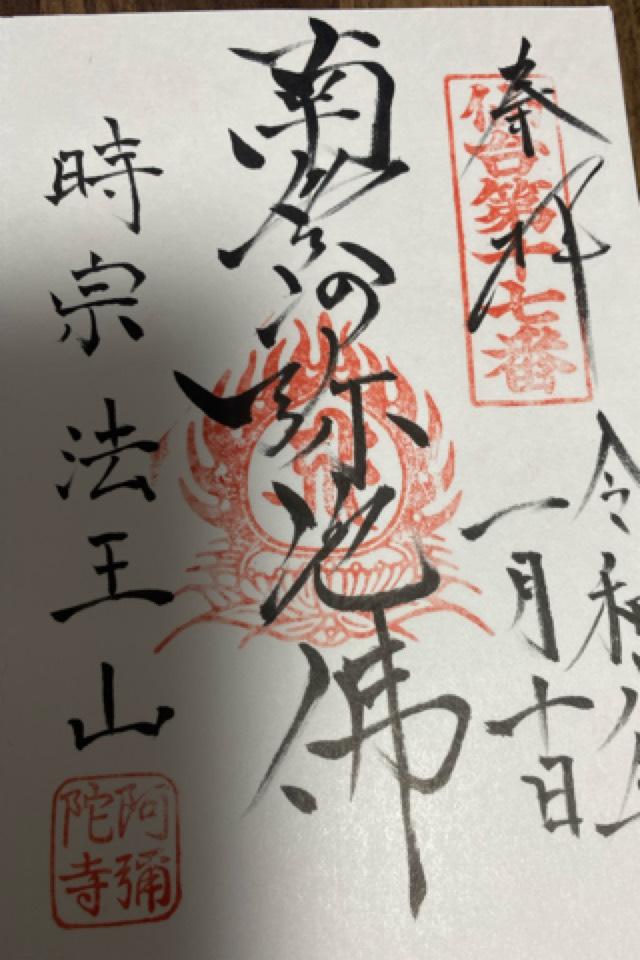 奉拝
仙台第十七番
令和八年
一月十日
南無阿弥陀佛
時宗法王山
阿彌
陀寺